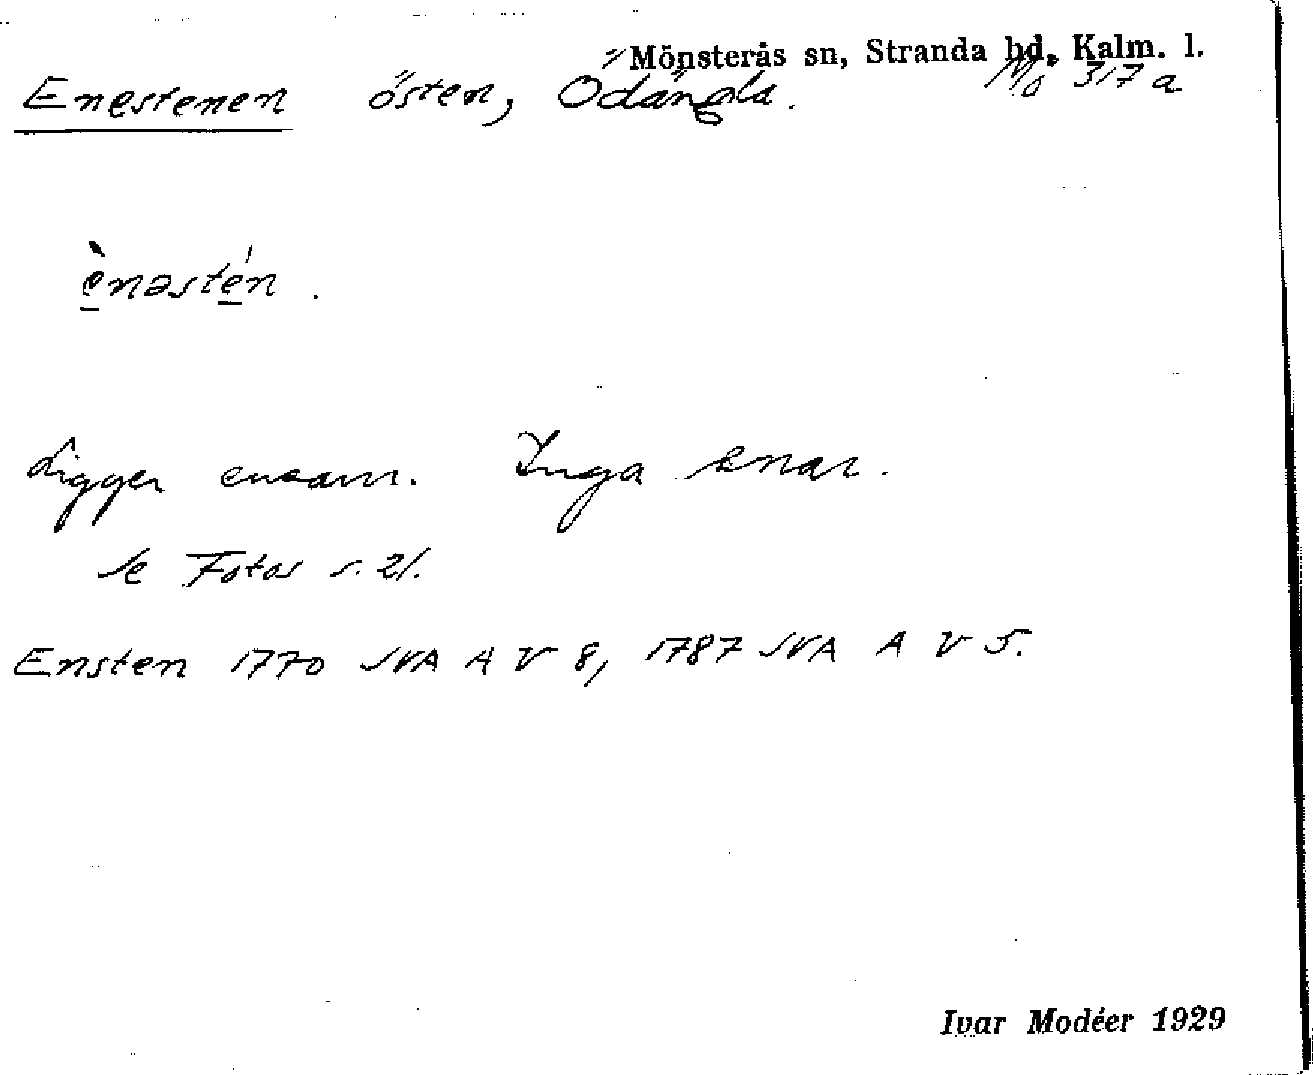 Mönsterås sn, Stranda hd, Kalm. l.
Enestenen östen, Ödängla. Mo 317 a
ènəstén.
Ligger ensam. Inga enar.
Se Fotos s. 21.
Ensten 1770 SVA A V 8, 1787 SVA A V 5.
Ivar Modéer 1929